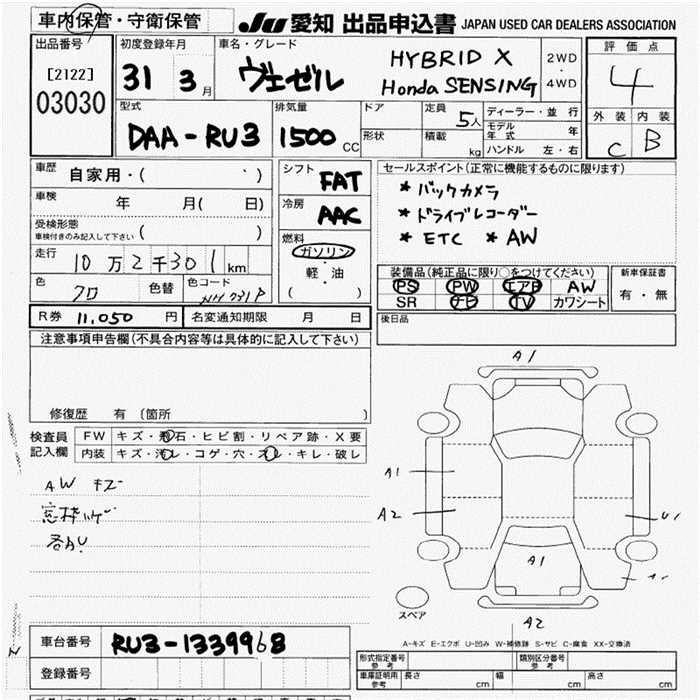 車内保管・守衛保管
JU 愛知 出品申込書 JAPAN USED CAR DEALERS ASSOCIATION
出品番号
[2122]
03030
初度登録年月
31 3月
車名・グレード
ヴェゼル
HYBRID X
Honda SENSING
2WD
・
4WD
評価点
4
外装 内装
C B
型式
DAA-RU3
排気量
1500 CC
ドア
形状
定員
5人
積載
kg
ディーラー・並行
モデル年式 年
ハンドル 左・右
車歴
自家用・( )
車検 年 月( 日)
受検形態
車検付きのみ記入して下さい ( )
走行 10万2千301km
色 クロ 色替 色コード
シフト FAT
冷房 AAC
燃料
ガソリン
・
軽・油
( )
セールスポイント(正常に機能するものに限ります)
* バックカメラ
* ドライブレコーダー
* ETC * AW
装備品(純正品に限り○をつけてください)
PS PW エアB AW
SR ナビ TV カワシート
新車保証書
有・無
R券 11,050 円 名変通知期限 月 日
後日品
注意事項申告欄(不具合内容等は具体的に記入して下さい)
修復歴 有 (箇所 )
検査員
記入欄
FW キズ・飛石・ヒビ割・リペア跡・X要
内装 キズ・汚レ・コゲ・穴・スレ・キレ・破レ
AW キズ
A1
A1
A2
U1
A1
A1
A2
スペア
A-キズ E-エクボ U-凹み W-補修跡 S-サビ C-腐食 XX-交換済
車台番号 RU3-1339968
登録番号
形式指定番号
参考
類別区分番号
参考
車庫証明用
参考
長さ cm 幅 cm 高さ cm